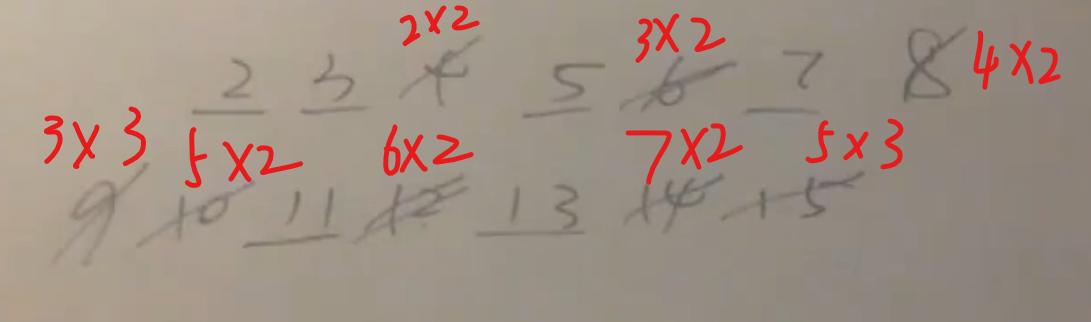 2×2 3×2
2 3 4 5 6 7 8 4×2
3×3 5×2 6×2 7×2 5×3
9 10 11 12 13 14 15